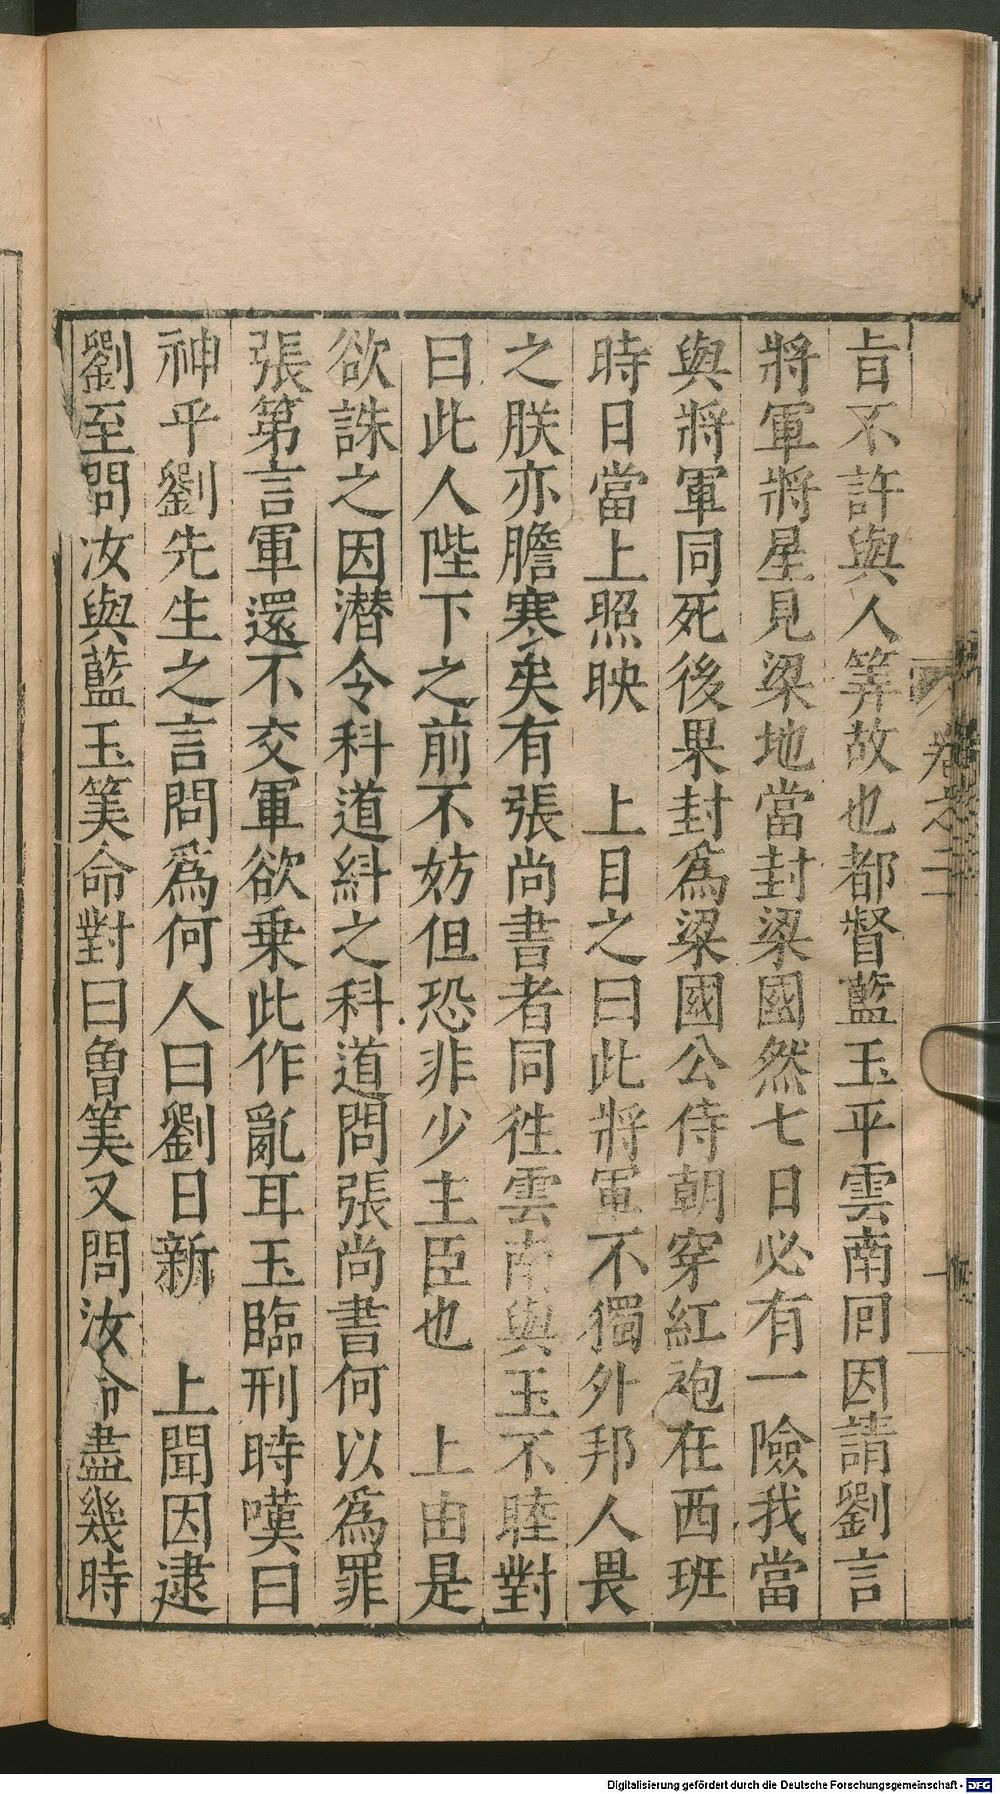 卷之二
旨不許與人筭故也都督藍玉平雲南囘因請劉言
將軍將星見梁地當封梁國然七日必有一險我當
與將軍同死後果封為梁國公侍朝穿紅袍在西班
時日當上照映　上目之曰此將軍不獨外邦人畏
之朕亦膽寒矣有張尚書者同徃雲南與玉不睦對
曰此人陛下之前不妨但恐非少主臣也　上由是
欲誅之因潛令科道糾之科道問張尚書何以為罪
張第言軍還不交軍欲乗此作亂耳玉臨刑時嘆曰
神乎劉先生之言問為何人曰劉日新　上聞因逮
劉至問汝與藍玉筭命對曰曾筭又問汝命盡幾時
Digitalisierung gefördert durch die Deutsche Forschungsgemeinschaft - DFG